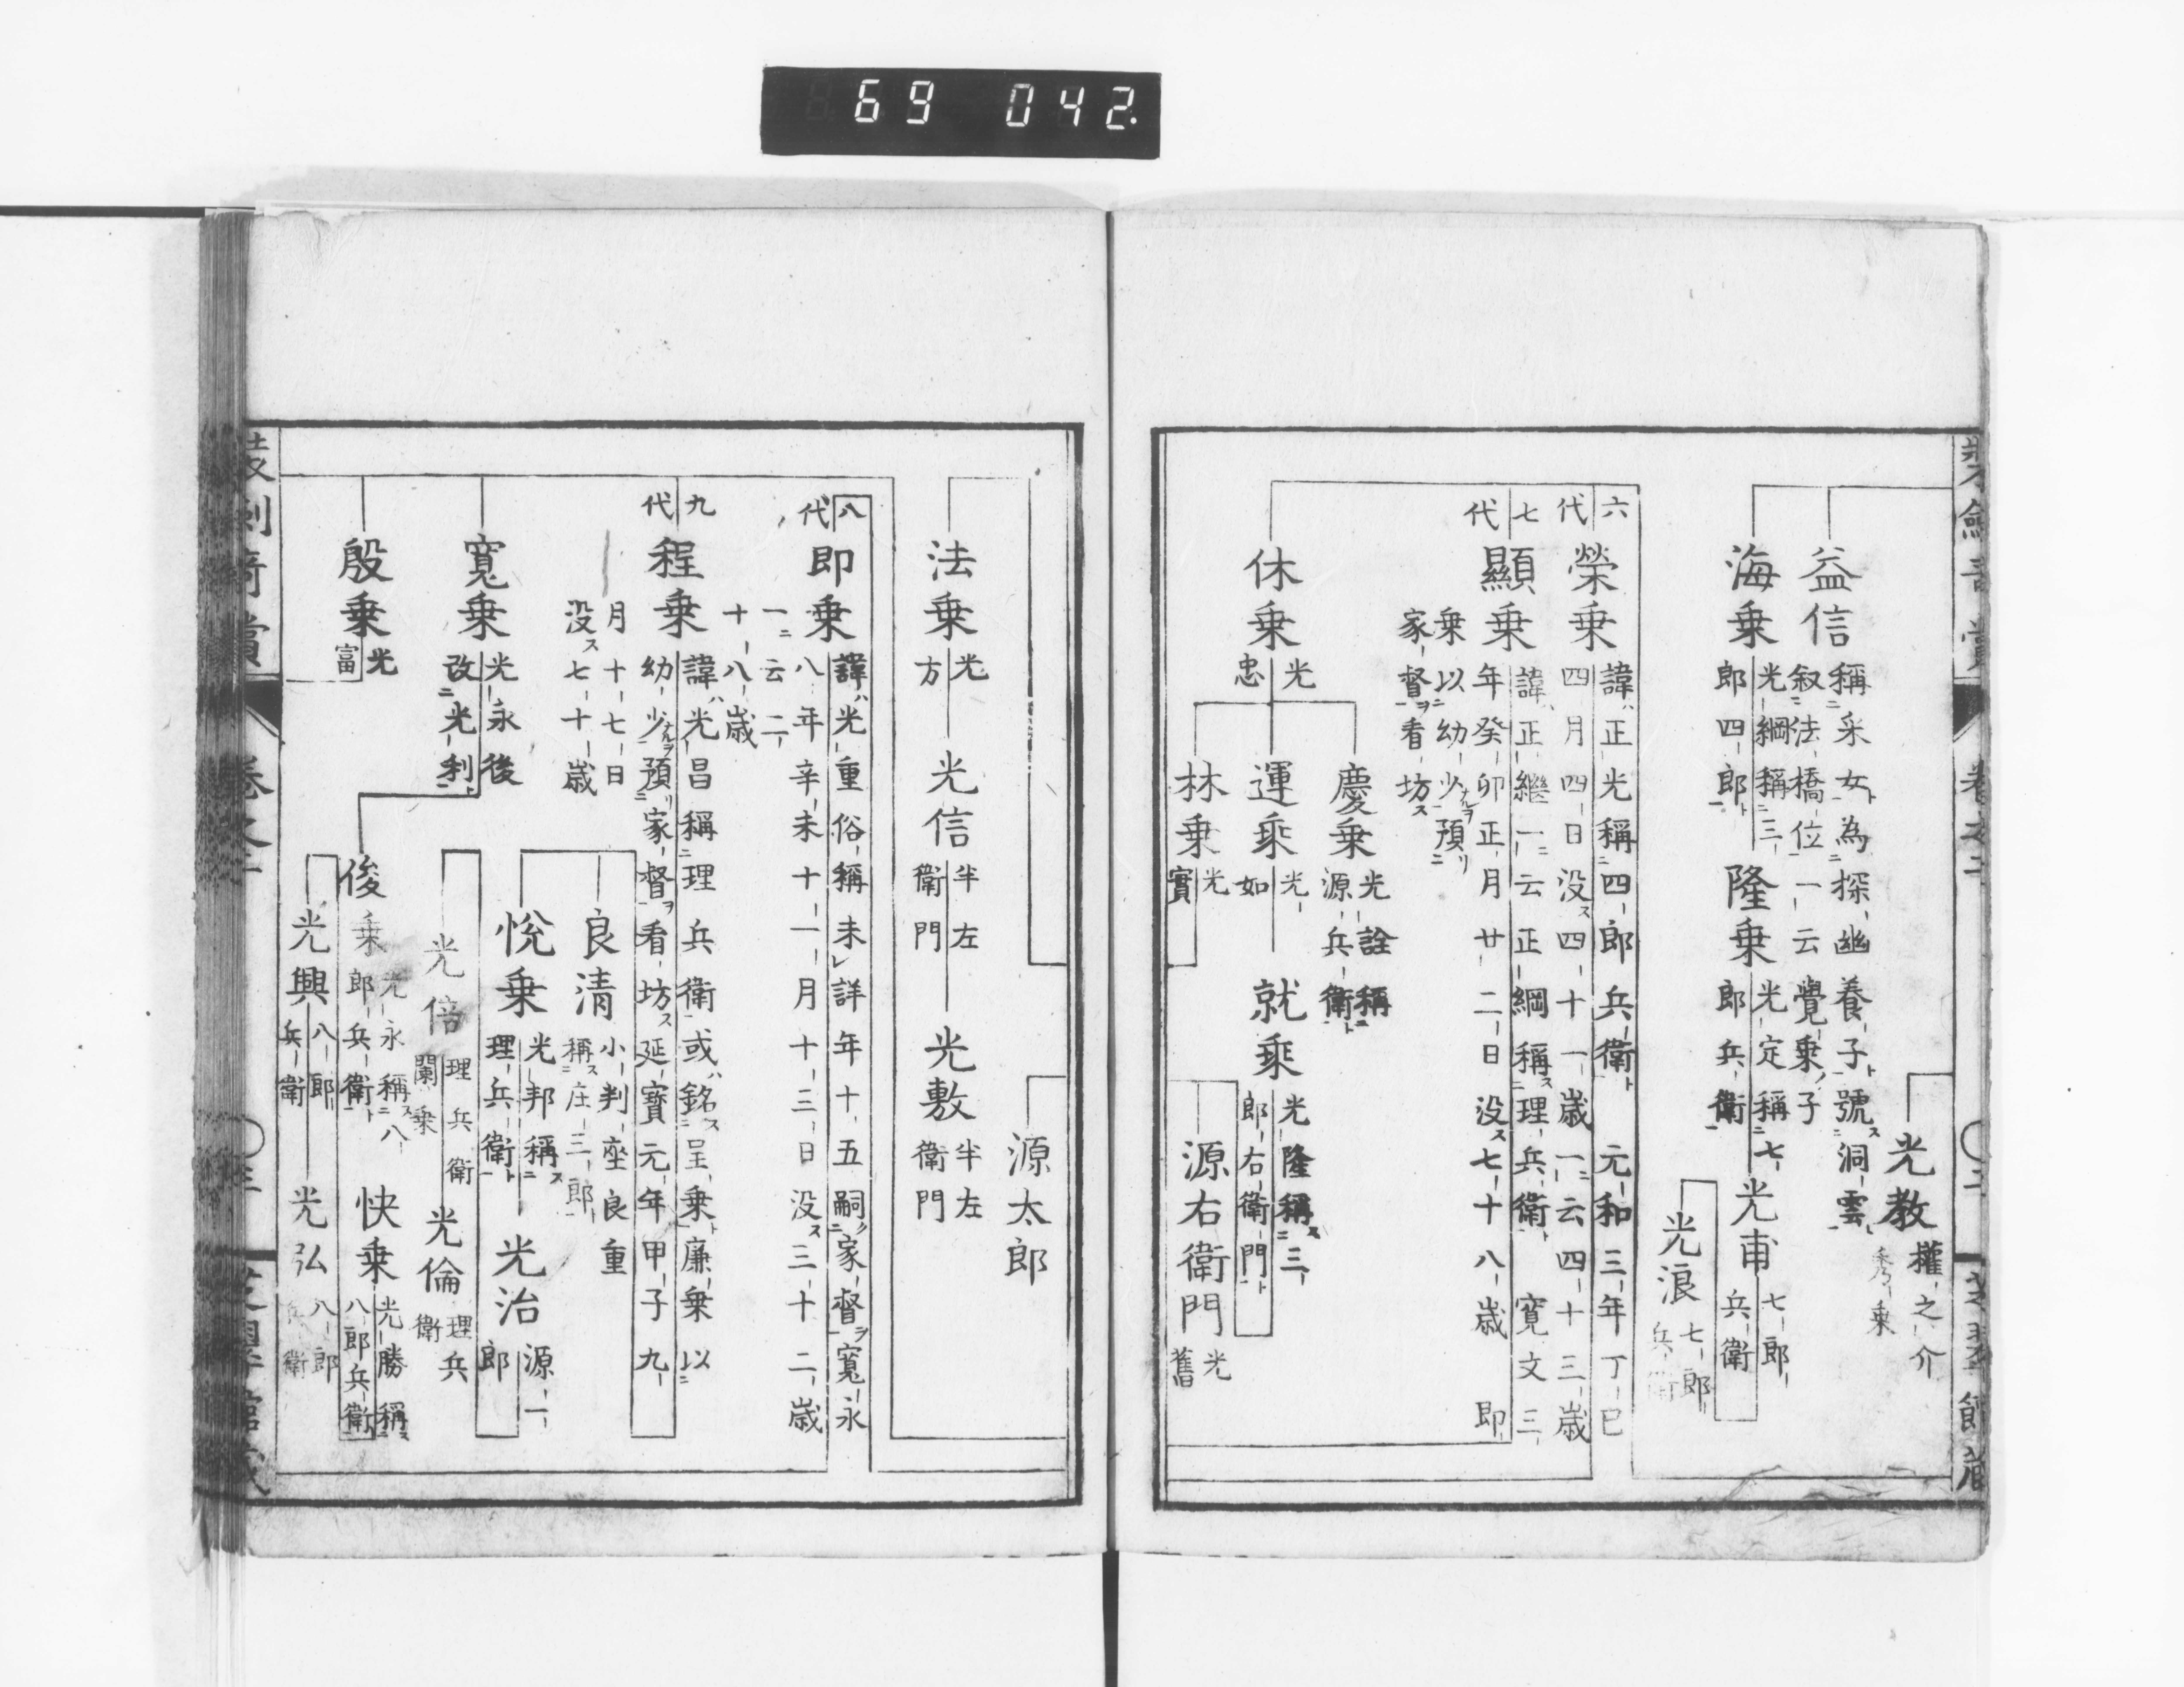 69 042.
光教 權之介
秀乗
益信 稱采女為探幽養子號洞雲
叙法橋位一云覺乗ノ子
海乗 光綱稱三
郎四郎
隆乗 光定稱七
郎兵衛
光甫 七郎
兵衛
光浪 七郎
兵衛
六代 榮乗 諱ハ正光稱四郎兵衛ト元和三年丁巳
四月四日没ス四十一歳一ニ云四十三歳
七代 顯乗 諱ハ正繼一ニ云正綱稱ス理兵衛ト寛文三
年癸卯正月廿二日没ス七十八歳 即
乗以幼少ナルヲ預リ
家督ヲ看坊ス
休乗 光
忠
慶乗 光詮稱
源兵衛ト
運乗 光
如
就乗 光隆稱ス三
郎右衛門ト
林乗 光
實
源右衛門 光
舊
源太郎
法乗 光
方
光信 半左
衛門
光敷 半左
衛門
八代 即乗 諱ハ光重俗稱未レ詳年十五嗣ク家督ヲ寛永
八年辛未十一月十三日没ス三十二歳
一ニ云二
十八歳
九代 程乗 諱ハ光昌稱理兵衛或ハ銘ス呈乗ト廉乗以
幼少ナルヲ預リ家督ヲ看坊ス延寶元年甲子九
月十七日
没ス七十歳
良清 小判座良重
稱ス庄三郎
悦乗 光邦稱ス
理兵衛ト
光治 源一
郎
寛乗 光永後
改光利ト
光倍 理兵衛
闌乗
光倫 理兵
衛
俊乗 光永稱ス八
郎兵衛ト
快乗 光勝稱ス
八郎兵衛
殷乗 光
富
光興 八郎
兵衛
光弘 八郎
兵衛